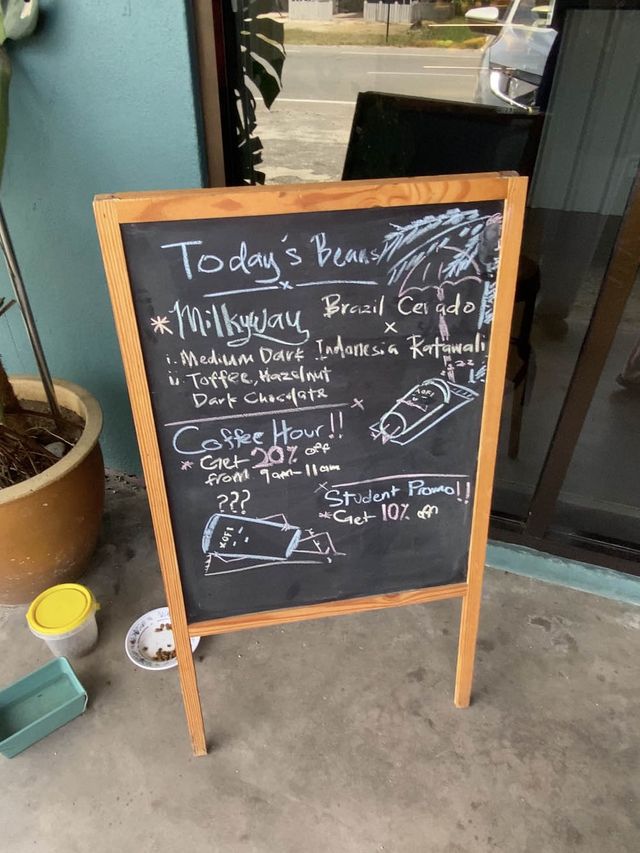 Today's Beans
* Milkyway
Brazil Cerado
x
Indonesia Ratawali
i. Medium Dark
ii. Toffee, Hazelnut
Dark Chocolate
Coffee Hour!!
* Get 20% off
from 9am-11am
???
KOFI
KOFI
Student Promo!!
* Get 10% off